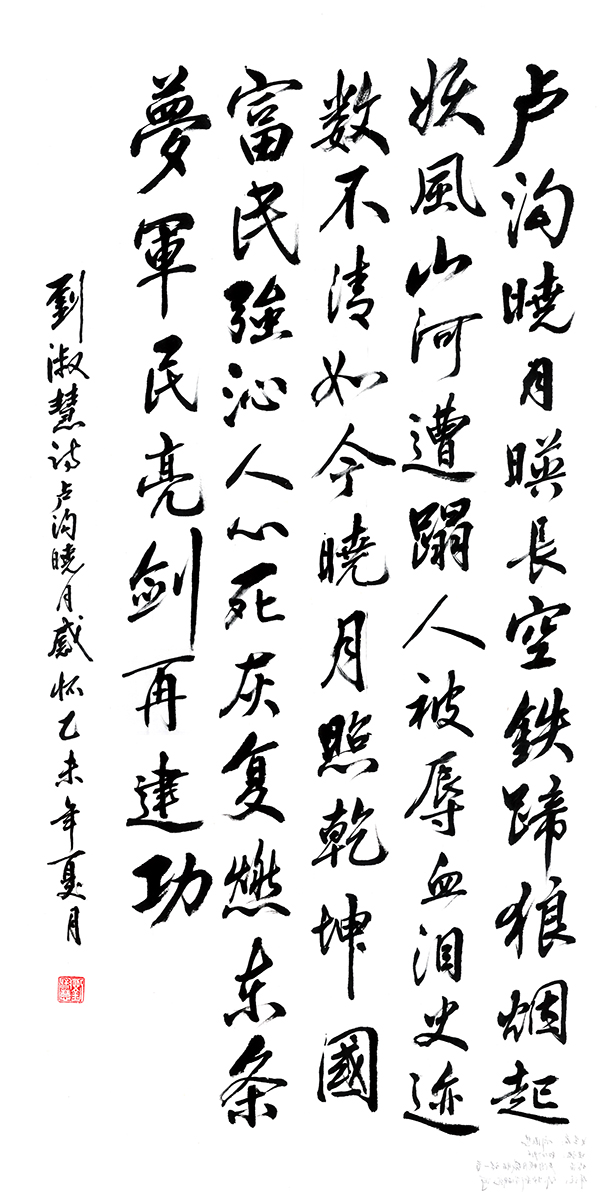 卢沟曉月暎長空鉄蹄狼烟起
妖風山河遭蹋人被辱血泪史迹
数不清如今曉月照乾坤國
富民強沁人心死灰复燃东条
夢軍民亮剑再建功
劉淑慧诗卢沟曉月感怀乙未年夏月